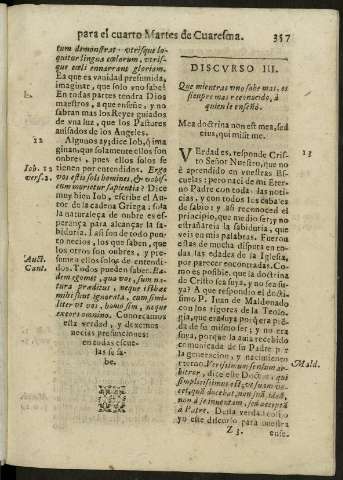 para el cuarto Martes de Cuaresma. 357
tum demonstrat. utrisque lo-
quitur lingua cælorum, utris-
que cæli enarrant gloriam.
Ea que es vanidad presumida,
imaginar, que solo vno sabe!
En todas partes tendra Dios
maestros, a que enseñe, y no
sabran mas los Reyes guiados
de vna luz, que los Pastores
auisados de los Angeles.
12
Algunos ay; dice Iob, q̃ ima
ginan, que solamente ellos son
onbres, pues ellos solos se
Iob. 12
tienen por entendidos. Ergo
vers. 2.
vos estis soli homines, & vobis-
cum morietur sapientia? Dice
muy bien Iob, escribe el Autor
de la cadena Griega: sola
la naturaleça de onbre es espe-
rança para alcançar la sa-
biduria. I assi son de todo pun-
to necios, los que saben, que
los otros son onbres, y pre-
sumen ellos solos de entendi-
Auct.
dos. Todos pueden saber. Ea-
Cant.
dem egomet, qua vos, sum na-
tura præditus, neque istæc
mihi sunt ignorata, cum simi-
liter ut vos, homo sim, neque
expers omnino. Conozcamos
esta verdad, y dexemos
necias presunciones:
en todas escue-
las se sa-
be.
DISCVRSO III.
Que mientras vno sabe mas, es
siempre mas reconocido, à
quien le enseñò.
Mea doctrina non est mea, sed
eius, qui misit me.
13
VERdad es, responde Cris-
to Señor Nuestro, que no
è aprendido en vuestras Es-
cuelas; pero naci de mi Eter-
no Padre con toda las noti-
cias, y con todos los cabos
de sabio: y assi reconoced el
principio, que me dio ser; y no
estrañareis la sabiduria, que
veis en mis palabras. Fueron
estas de mucha disputa en to-
das las edades de la Iglesia,
por parecer encontradas. Co-
mo es posible, que la doctrina
de Cristo sea suya, y no sea su-
ya? A que respondio el doctisi
mo P. Iuan de Maldonado
con los rigores de la Teolo-
gia, que era suya porq̃ era pië
da de su mismo ser; y no era
suya, porque la auia recebido
comunicada de su Padre por
la generacion, y nacimiento
Mald.
eterno. Verissimum sensum ar-
bitror, dice este Doctor, qui
simplicissimus est; ut suam vo-
cet, quã docebat, non suã, ideò,
non à se inuentam, sed acceptã
à Patre. Desta verdad colijo
yo este discurso para nuestra
Z 3. ense-